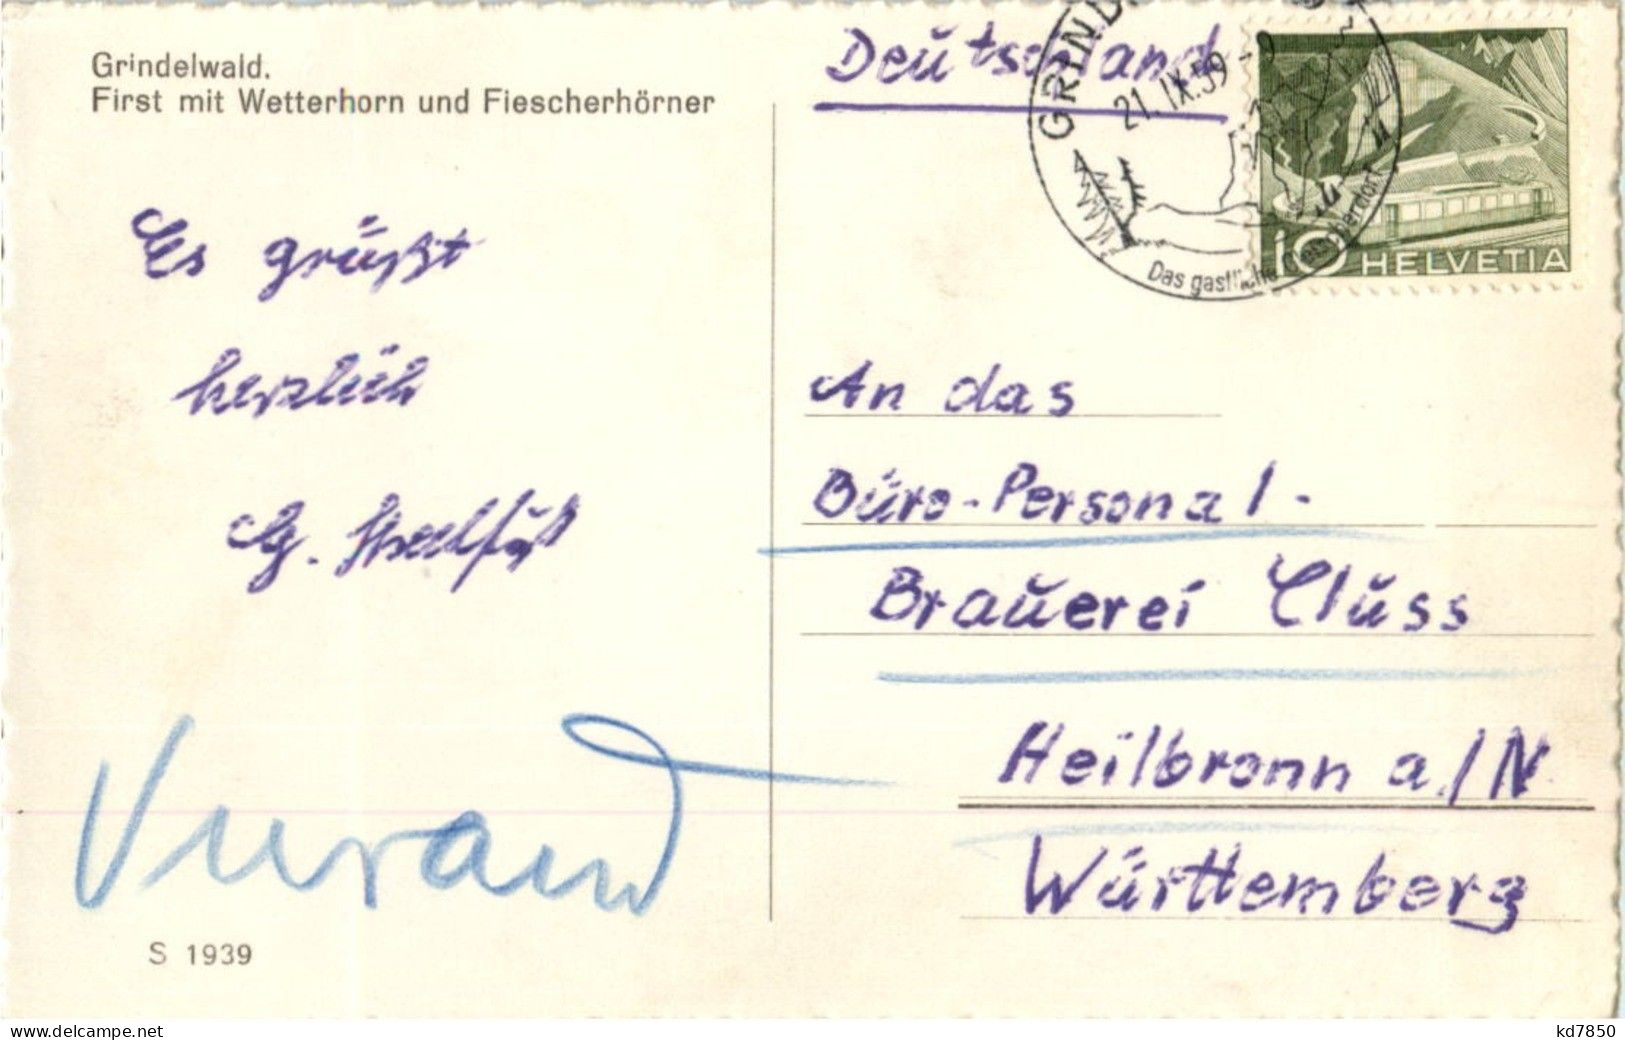 Grindelwald.
First mit Wetterhorn und Fiescherhörner
Deutschland
21. IX. 59 - 9
Das gastliche Gletscherdorf
10 HELVETIA
Es grüßt
herzlich
An das
Büro-Personal-
Brauerei Cluss
Heilbronn a/N
Württemberg
S 1939
www.delcampe.net
kd7850